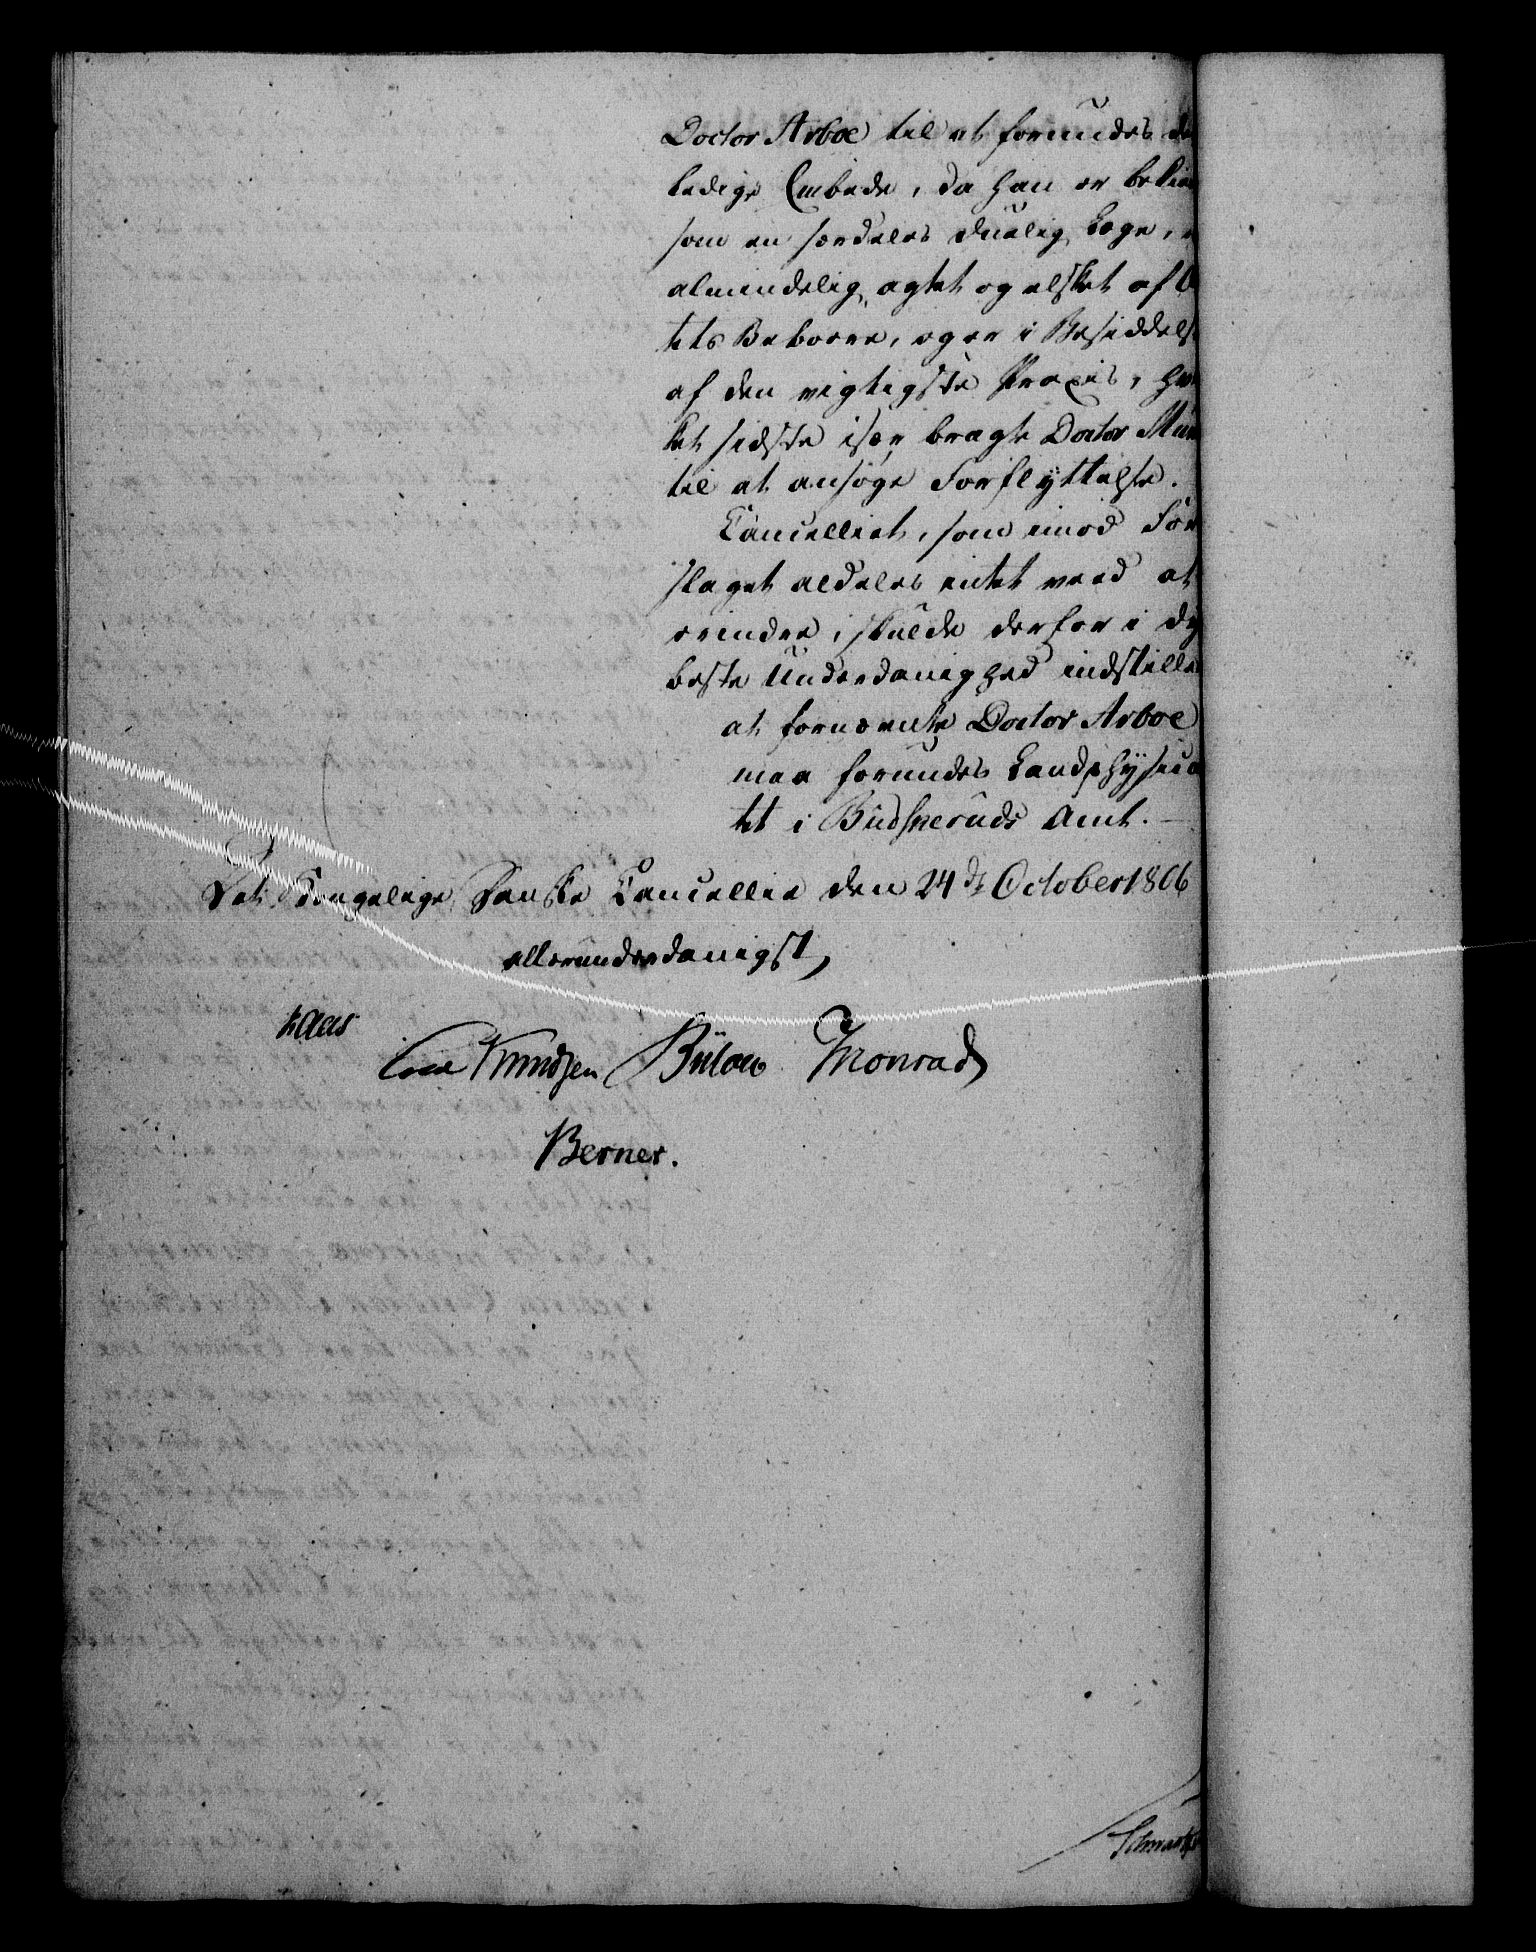 Doctor Arboe til at forundes de
ledige Embede, da han er bekien
som en særdeles duelig Læge, e
almindelig agtet og elsket af
tets Beboere, og er i Besiddels
af den vigtigste Praxis, hvi
ket sidste især bragte Doctor Mün
til at ansøge Forflyttelse.
Cancelliet, som imod For
slaget aldeles intet veed at
erindre, skulde derfor i dy
beste Underdanighed indstille
at fornævnte Doctor Arboe
maa forundes Landphysica
tet i Budskeruds Amt. —
Det Kongelige Danske Cancellie den 24de October 1806
allerunderdanigst,
Kaas
Knudsen Bülow Monrad
Berner.